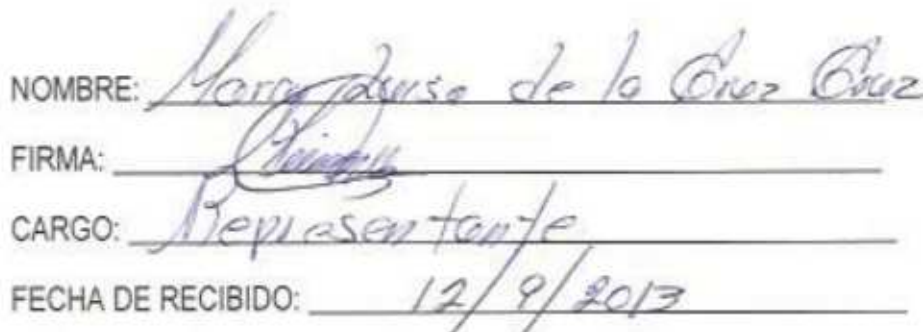 NOMBRE: Mara Luisa de la Cruz Cruz
FIRMA:
CARGO: Representante
FECHA DE RECIBIDO: 12/9/2013